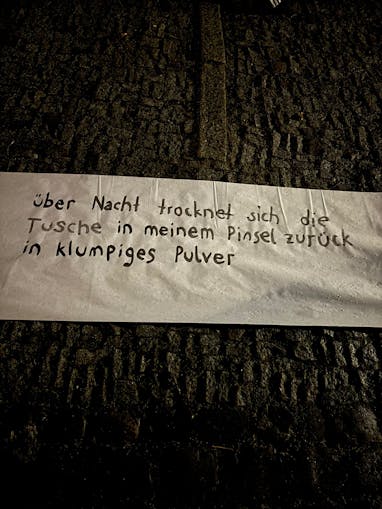 über Nacht trocknet sich die
Tusche in meinem Pinsel zurück
in klumpiges Pulver